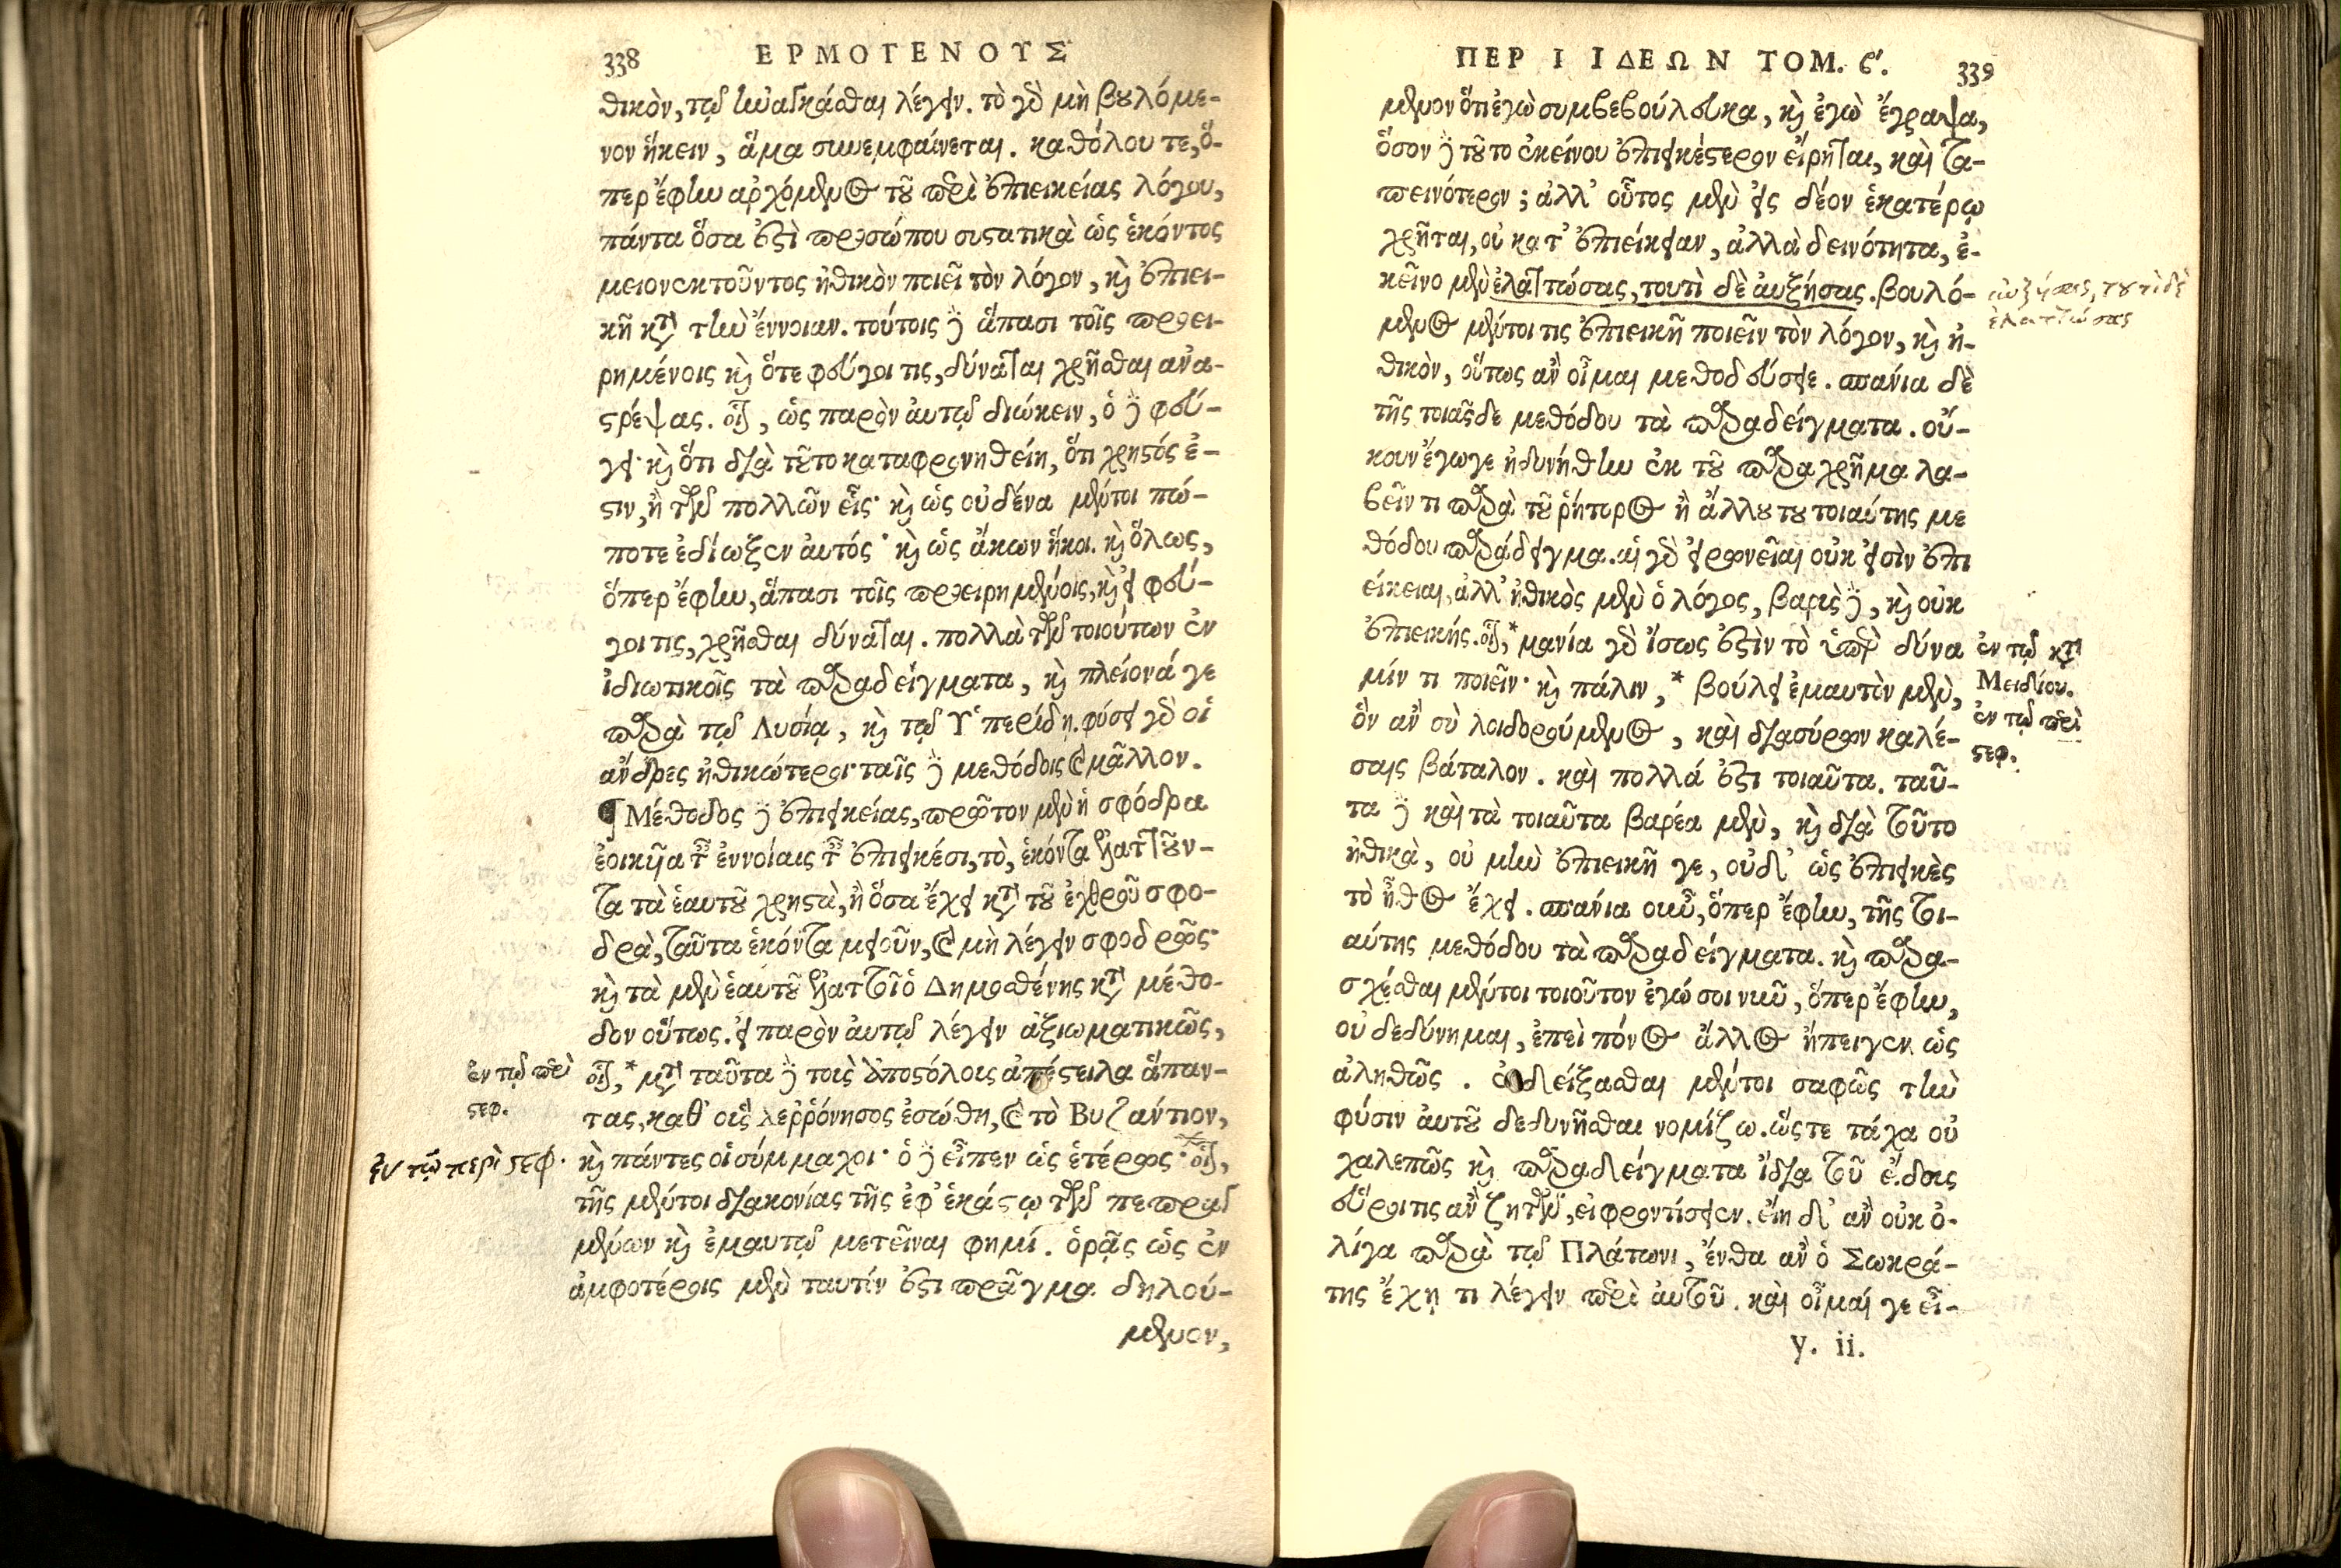 338 ΕΡΜΟΓΕΝΟΥΣ
θικὸν, τῷ ἠναγκάσθαι λέγειν. τὸ γὸ μὴ βουλόμε-
νον ἥκειν, ἅμα συνεμφαίνεται. καθόλου τε, ὅ-
περ ἔφην ἀρχόμενος τοῦ περὶ ἐπιεικείας λόγου,
πάντα ὅσα ἐστὶ προσώπου συστατικὰ ὡς ἑκόντος
μειονεκτοῦντος ἠθικὸν ποιεῖ τὸν λόγον, καὶ ἐπιει-
κῆ κατὰ τὴν ἔννοιαν. τούτοις δὲ ἅπασι τοῖς προει-
ρημένοις καὶ ὅτε φεύγοι τις, δύναται χρῆσθαι ἀνα-
στρέψας. οἷον, ὡς παρὸν αὐτῷ διώκειν, ὁ δὲ φεύ-
γει· καὶ ὅτι διὰ τοῦτο καταφρονηθείη, ὅτι χρηστός ἐ-
στιν, ἢ τῶν πολλῶν εἷς· καὶ ὡς οὐδένα μέντοι πώ-
ποτε ἐδίωξεν αὐτός· καὶ ὡς ἄκων ἥκοι. καὶ ὅλως,
ὅπερ ἔφην, ἅπασι τοῖς προειρημένοις, καὶ εἰ φεύ-
γοι τις, χρῆσθαι δύναται. πολλὰ τῶν τοιούτων ἐν
ἰδιωτικοῖς τὰ παραδείγματα, καὶ πλείονά γε
παρὰ τῷ Λυσίᾳ, καὶ τῷ Ὑπερίδῃ. φύσει γὸ οἱ
ἄνδρες ἠθικώτεροι· ταῖς δὲ μεθόδοις καὶ μᾶλλον.
¶ Μέθοδος δὲ ἐπιεικείας, πρῶτον μὲν ἡ σφόδρα
ἐοικυῖα ταῖς ἐννοίαις ταῖς ἐπιεικέσι, τὸ, ἑκόντα ἐλαττοῦν-
τα τὰ ἑαυτοῦ χρηστὰ, ἢ ὅσα ἔχει κατὰ τοῦ ἐχθροῦ σφο-
δρὰ, ταῦτα ἑκόντα μειοῦν, καὶ μὴ λέγειν σφοδρῶς·
καὶ τὰ μὲν ἑαυτοῦ ἐλαττοῖ ὁ Δημοσθένης κατὰ μέθο-
δον οὕτως. εἰ παρὸν αὐτῷ λέγειν ἀξιωματικῶς,
ἐν τῷ περὶ στεφ.
οἷον,* μετὰ ταῦτα δὲ τοὺς ἀποστόλους ἀπέστειλα ἅπαν-
τας, καθ' οὓς Χερρόνησος ἐσώθη, καὶ τὸ Βυζάντιον,
ἐν τῷ περὶ στεφ.
καὶ πάντες οἱ σύμμαχοι· ὁ δὲ εἶπεν ὡς ἑτέρως· οἷον,
τῆς μέντοι διακονίας τῆς ἐφ' ἑκάστῳ τῶν πεπραγ
μένων καὶ ἐμαυτῷ μετεῖναι φημί. ὁρᾷς ὡς ἐν
ἀμφοτέροις μὲν ταυτόν ἐστι πρᾶγμα δηλού-
μενον,
ΠΕΡΙ ΙΔΕΩΝ ΤΟΜ. ϛ'. 339
μενον ὅτι ἐγὼ συμβεβούλευκα, καὶ ἐγὼ ἔγραψα,
ὅσον δὲ τοῦτο ἐκείνου ἐπιεικέστερον εἴρηται, καὶ τα-
πεινότερον; ἀλλ' οὗτος μὲν εἰς δέον ἑκατέρῳ
χρῆται, οὐ κατ' ἐπιείκειαν, ἀλλὰ δεινότητα, ἐ-
κεῖνο μὲν ἐλαττώσας, τουτὶ δὲ αὐξήσας. βουλό-
αὐξήσας, τουτὶ δὲ
ἐλαττώσας
μενος μέντοι τις ἐπιεικῆ ποιεῖν τὸν λόγον, καὶ ἠ-
θικὸν, οὕτως ἂν οἶμαι μεθοδεύσειε. σπάνια δὲ
τῆς τοιᾶσδε μεθόδου τὰ παραδείγματα. οὔ-
κουν ἔγωγε ἠδυνήθην ἐκ τοῦ παραχρῆμα λα-
βεῖν τι παρὰ τοῦ ῥήτορος ἢ ἄλλου του τοιαύτης με
θόδου παράδειγμα. αἱ γὸ εἰρωνεῖαι οὐκ εἰσὶν ἐπι
είκειαι, ἀλλ' ἠθικὸς μὲν ὁ λόγος, βαρὺς δὲ, καὶ οὐκ
ἐπιεικής. οἷον,* μανία γὸ ἴσως ἐστὶν τὸ ὑπὲρ δύνα
ἐν τῷ κατὰ
Μειδίου.
μίν τι ποιεῖν· καὶ πάλιν,* βούλει ἐμαυτὸν μὲν,
ἐν τῷ περὶ
στεφ.
ὃν ἂν σὺ λοιδορούμενος, καὶ διασύρων καλέ-
σαις βάταλον. καὶ πολλά ἐστι τοιαῦτα. ταῦ-
τα δὲ καὶ τὰ τοιαῦτα βαρέα μὲν, καὶ διὰ τοῦτο
ἠθικὰ, οὐ μὴν ἐπιεικῆ γε, οὐδ' ὡς ἐπιεικὲς
τὸ ἦθος ἔχει. σπάνια οὖν, ὅπερ ἔφην, τῆς τοι-
αύτης μεθόδου τὰ παραδείγματα. καὶ παρα-
σχέσθαι μέντοι τοιοῦτον ἐγώ σοι νῦν, ὅπερ ἔφην,
οὐ δεδύνημαι, ἐπεὶ πόνος ἄλλος ἤπειγεν ὡς
ἀληθῶς. ἐνδείξασθαι μέντοι σαφῶς τὴν
φύσιν αὐτοῦ δεδυνῆσθαι νομίζω. ὥστε τάχα οὐ
χαλεπῶς καὶ παραδείγματα ἴδια τοῦ εἴδους
εὕροι τις ἂν ζητῶν, εἰ φροντίσειεν. εἴη δ' ἂν οὐκ ὀ-
λίγα παρὰ τῷ Πλάτωνι, ἔνθα ἂν ὁ Σωκρά-
της ἔχῃ τι λέγειν περὶ αὑτοῦ. καὶ οἶμαί γε εἶ-
y. ii.